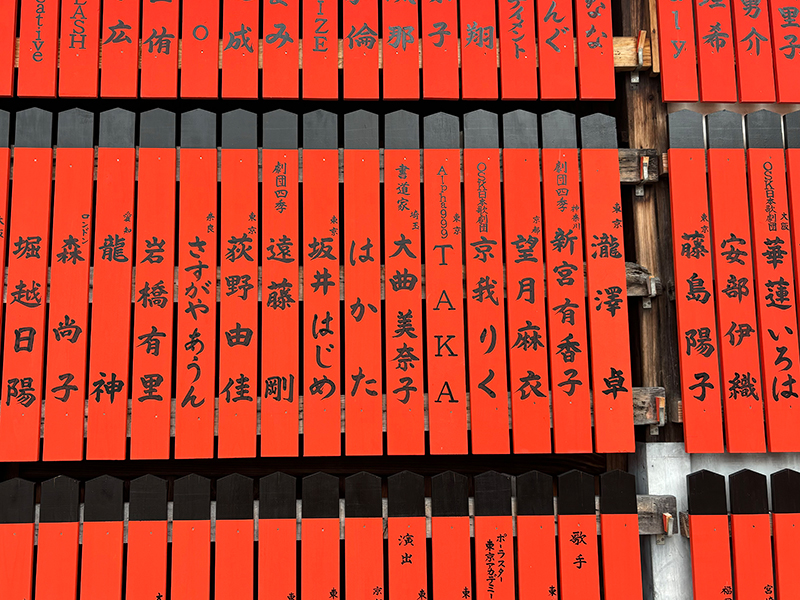 里子
男介
希
ly
なな
んぐ
イメント
翔
子
那
倫
IZE
み
成
O
侑
広
LASH
ative
大阪
OSK日本歌劇団
華蓮いろは
安部伊織
東京
藤島陽子
東京
瀧澤卓
神奈川
劇団四季
新宮有香子
京都
望月麻衣
OSK日本歌劇団
京我りく
東京
Alpha999
TAKA
埼玉
書道家
大曲美奈子
はかた
東京
坂井はじめ
劇団四季
遠藤剛
東京
荻野由佳
奈良
さすがやあうん
岩橋有里
愛知
龍神
ロンドン
森尚子
堀越日陽
大阪
歌手
ポーラスター
東京アカデミー
演出